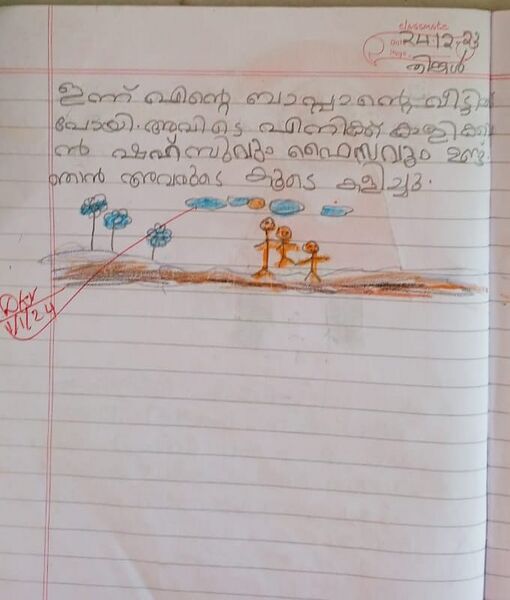 classmate
Date 24-12-23
Page
തിങ്കൾ
ഇന്ന് എന്റെ ബാപ്പാന്റെ വീട്ടിൽ
പോയി. അവിടെ എനിക്ക് കളിക്കാ
ൻ ഷഹ്സുവും ഫൈസുവും ഉണ്ട്.
ഞാൻ അവരുടെ കൂടെ കളിച്ചു.
1/1/24